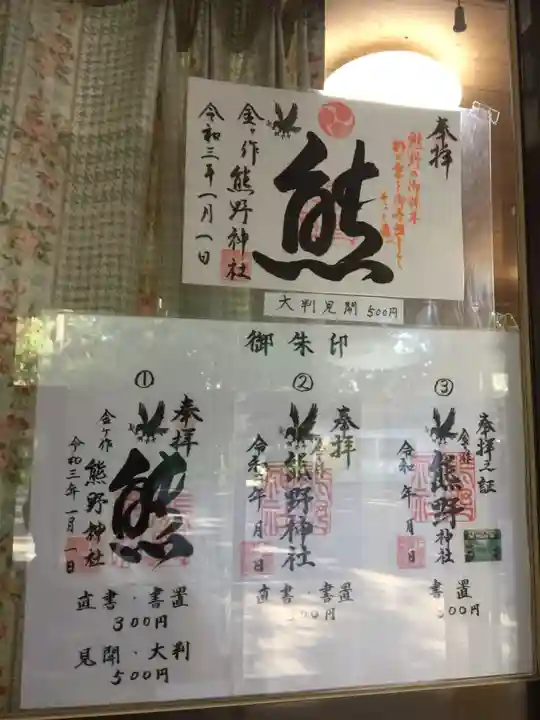 奉拝
熊
金ヶ作熊野神社
令和三年一月一日
大判見開 500円
御朱印
①
奉拝
熊
金ヶ作
熊野神社
令和三年一月一日
直書・書置
300円
見開・大判
500円
②
奉拝
熊野神社
月 日
直書・書置
00円
③
奉拝之証
熊野神社
令和 年 月 日
書置
00円